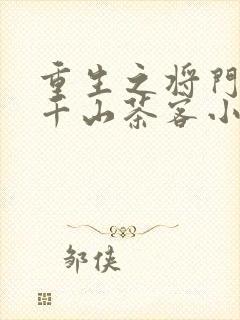 重生之将門
千山茶客小
邹侠